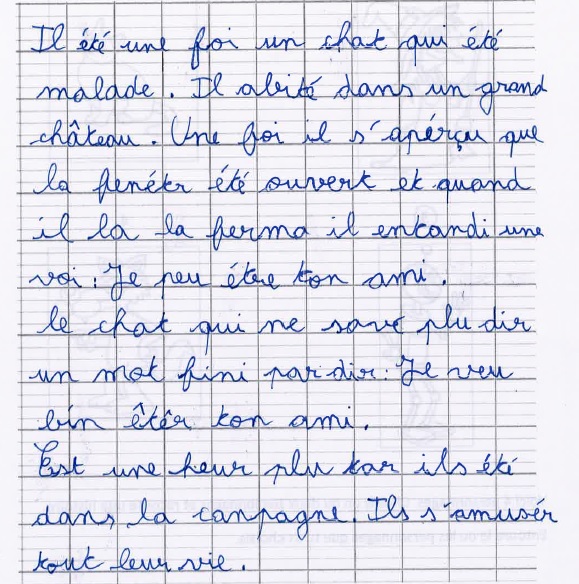 Il été une foi un chat qui été
malade. Il abité dans un grand
château. Une foi il s'apérçu que
la fenétr été ouvert et quand
il la la ferma il entandi une
voi : Je peu étre ton ami.
le chat qui ne savé plu dir
un mot fini par dir : Je veu
bin êtêr ton ami.
Est une heur plu tar ils été
dans la canpagne. Ils s'amusér
tout leur vie.